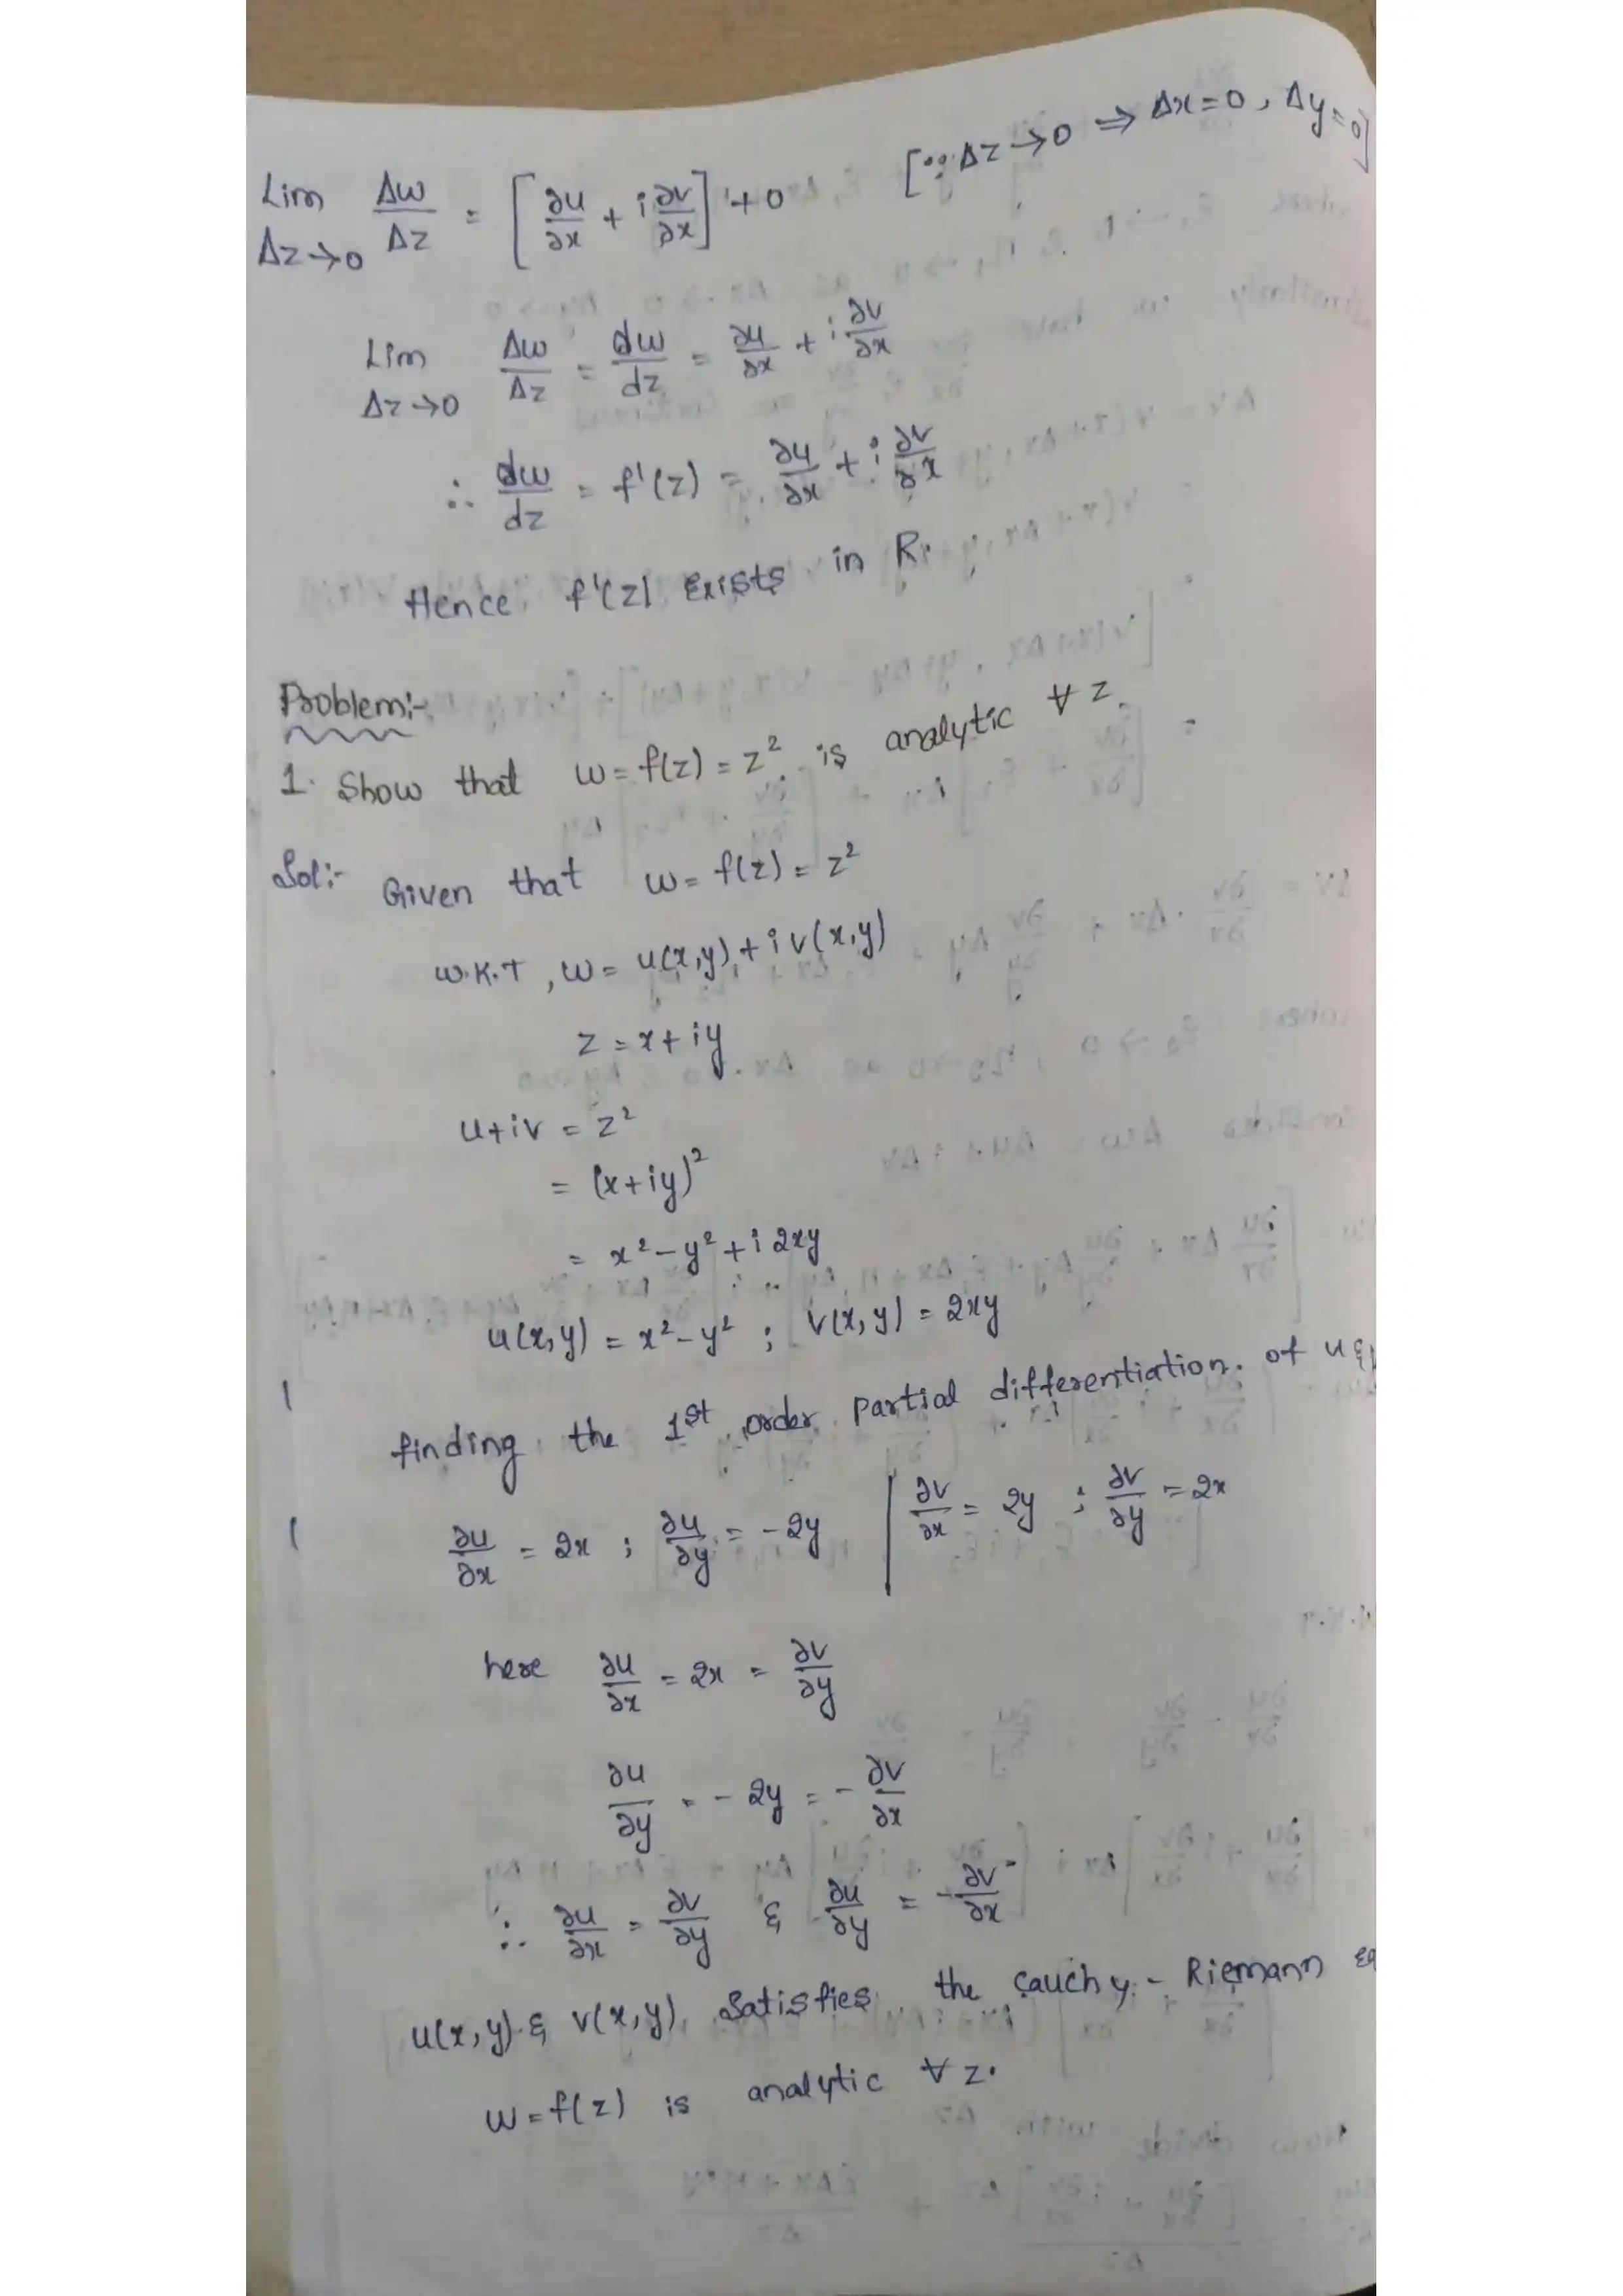 Lim Δz→0 Δw/Δz = [∂u/∂x + i ∂v/∂x] + 0 [∵ Δz→0 ⇒ Δx=0, Δy=0]
Lim Δz→0 Δw/Δz = dw/dz = ∂u/∂x + i ∂v/∂x
∴ dw/dz = f'(z) = ∂u/∂x + i ∂v/∂x
Hence f'(z) Exists in R.
Problem:-
1. Show that w = f(z) = z² is analytic ∀ z.
Sol:- Given that w = f(z) = z²
w.K.T, w = u(x,y) + i v(x,y)
z = x + iy
u+iv = z²
= (x+iy)²
= x² - y² + i 2xy
u(x,y) = x² - y² ; v(x,y) = 2xy
finding the 1st order partial differentiation of u &
∂u/∂x = 2x ; ∂u/∂y = -2y | ∂v/∂x = 2y ; ∂v/∂y = 2x
here ∂u/∂x = 2x = ∂v/∂y
∂u/∂y = -2y = -∂v/∂x
∴ ∂u/∂x = ∂v/∂y & ∂u/∂y = -∂v/∂x
u(x,y) & v(x,y) Satisfies the Cauchy - Riemann
w = f(z) is analytic ∀ z.